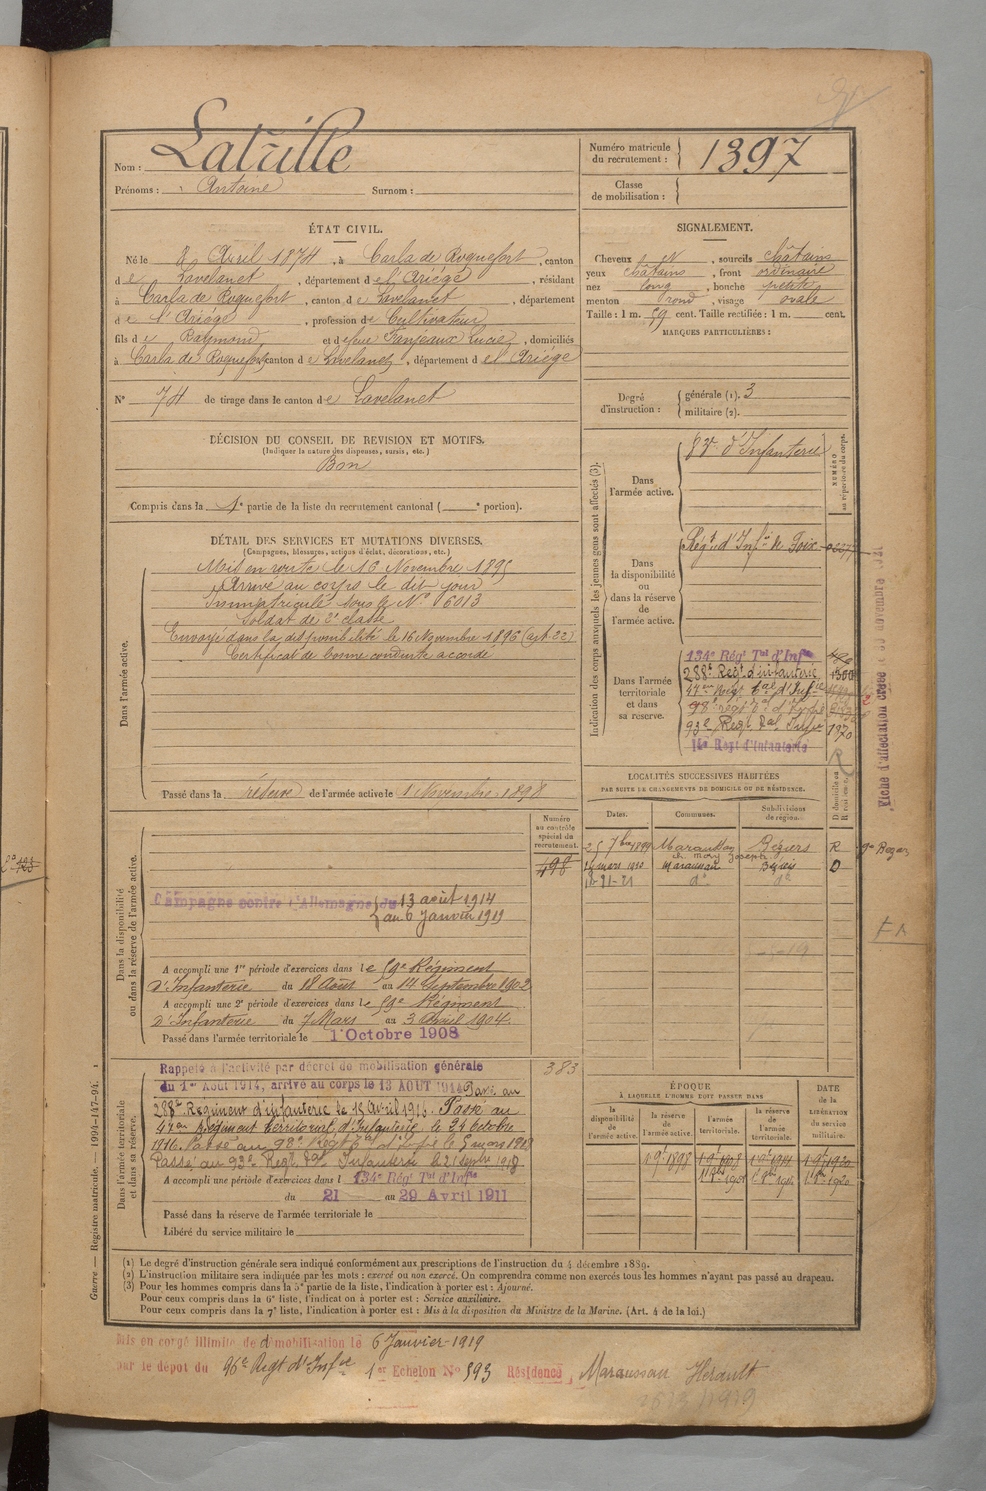 Nom : Latrille
Prénoms : Antoine Surnom :
Numéro matricule du recrutement : 1397
Classe de mobilisation :
ÉTAT CIVIL.
Né le 8 Avril 1874, à Carla de Roquefort, canton
de Lavelanet, département de l'Ariège, résidant
à Carla de Roquefort, canton de Lavelanet, département
de l'Ariège, profession de Cultivateur
fils de Raymond et de feue Fanjeaux Lucie, domiciliés
à Carla de Roquefort canton de Lavelanet, département de l'Ariège
N° 74 de tirage dans le canton de Lavelanet
SIGNALEMENT.
Cheveux , sourcils châtains
yeux châtains, front ordinaire
nez long, bouche petite
menton rond, visage ovale
Taille : 1 m. 59 cent. Taille rectifiée : 1 m. cent.
MARQUES PARTICULIÈRES :
Degré d'instruction : générale (1). 3
militaire (2).
DÉCISION DU CONSEIL DE REVISION ET MOTIFS.
(Indiquer la nature des dispenses, sursis, etc.)
Bon
Compris dans la 1e partie de la liste du recrutement cantonal ( e portion).
DÉTAIL DES SERVICES ET MUTATIONS DIVERSES.
(Campagnes, blessures, actions d'éclat, décorations, etc.)
Dans l'armée active.
Mis en route le 16 Novembre 1895
Arrivé au corps le dit jour
Immatriculé sous le N° 6013
Soldat de 2e classe
Envoyé dans la disponibilité le 16 Novembre 1896 (art. 22)
Certificat de bonne conduite accordé
Passé dans la réserve de l'armée active le 1 Novembre 1898
Indication des corps auxquels les jeunes gens sont affectés (3).
NUMÉRO au répertoire du corps.
Dans l'armée active.
d'Infanterie
Dans la disponibilité ou dans la réserve de l'armée active.
Régt d'Infie de Foix
Dans l'armée territoriale et dans sa réserve.
134e Régt Tal d'Infie
288e Regt d'infanterie 1300
47e Regt Tal d'Infie
98e régt Tal d'Infie
93e Regt Tal Infie 1970
Regt d'Infanterie
LOCALITÉS SUCCESSIVES HABITÉES
PAR SUITE DE CHANGEMENTS DE DOMICILE OU DE RÉSIDENCE.
Dates. Communes. Subdivisions de région. D domicile ou R résidence.
25 7bre 1899 Maraussan Béziers R
ch. Mony Joseph
mars 1910 Maraussan Béziers D
18-21-21 do do
Numéro au contrôle spécial du recrutement.
498
Dans la disponibilité ou dans la réserve de l'armée active.
Campagne contre l'Allemagne du 13 août 1914
au 6 Janvier 1919
A accompli une 1re période d'exercices dans le 59e Régiment
d'Infanterie du 18 Août au 14 Septembre 1902
A accompli une 2e période d'exercices dans le 59e Régiment
d'Infanterie du 7 Mars au 3 Avril 1904.
Passé dans l'armée territoriale le 1 Octobre 1908
Dans l'armée territoriale et dans sa réserve.
Rappelé à l'activité par décret de mobilisation générale
du 1er Août 1914, arrivé au corps le 13 AOUT 1914 Passé au
288e Régiment d'infanterie le 18 Avril 1916. Passé au
47e Régiment territorial d'Infanterie le 21 octobre
1916. Passé au 98e Régt Tal d'Infie le 5 mars 1918
Passé au 93e Regt Tal Infanterie le 21 septre 1918
A accompli une période d'exercices dans l 134e Régt Tal d'Infie
du 21 au 29 Avril 1911
Passé dans la réserve de l'armée territoriale le
Libéré du service militaire le
383
ÉPOQUE
À LAQUELLE L'HOMME DOIT PASSER DANS
la disponibilité de l'armée active. la réserve de l'armée active. l'armée territoriale. la réserve de l'armée territoriale. DATE de la LIBÉRATION du service militaire.
(1) Le degré d'instruction générale sera indiqué conformément aux prescriptions de l'instruction du 4 décembre 1889.
(2) L'instruction militaire sera indiquée par les mots : exercé ou non exercé. On comprendra comme non exercés tous les hommes n'ayant pas passé au drapeau.
(3) Pour les hommes compris dans la 5e partie de la liste, l'indication à porter est : Ajourné.
Pour ceux compris dans la 6e liste, l'indication à porter est : Service auxiliaire.
Pour ceux compris dans la 7e liste, l'indication à porter est : Mis à la disposition du Ministre de la Marine. (Art. 4 de la loi.)
Mis en congé illimité de démobilisation le 6 Janvier 1919
par le dépot du 96e Regt d'Infie 1er Echelon No 593 Résidence, Maraussan Hérault
Guerre. — Registre matricule. — 1994-147-94.